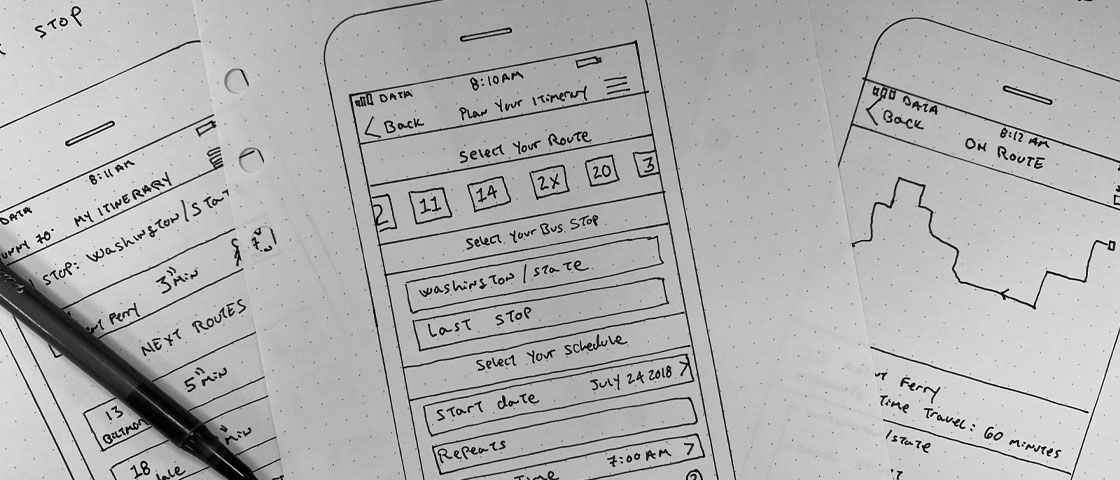 STOP
8:11AM
DATA
MY ITINERARY
STOP: Washington/Stat
3 Min
Ferry
NEXT ROUTES
5 Min
13
18
Min
8:10AM
DATA
Back
Plan Your Itinerary
Select Your Route
2 11 14 2X 20 3
Select Your Bus Stop
Washington/State
Last Stop
Select Your Schedule
Start date July 24 2018
Repeats
Time 7:00AM
DATA
8:12 AM
Back
ON ROUTE
Ferry
Time Travel: 60 minutes
/State